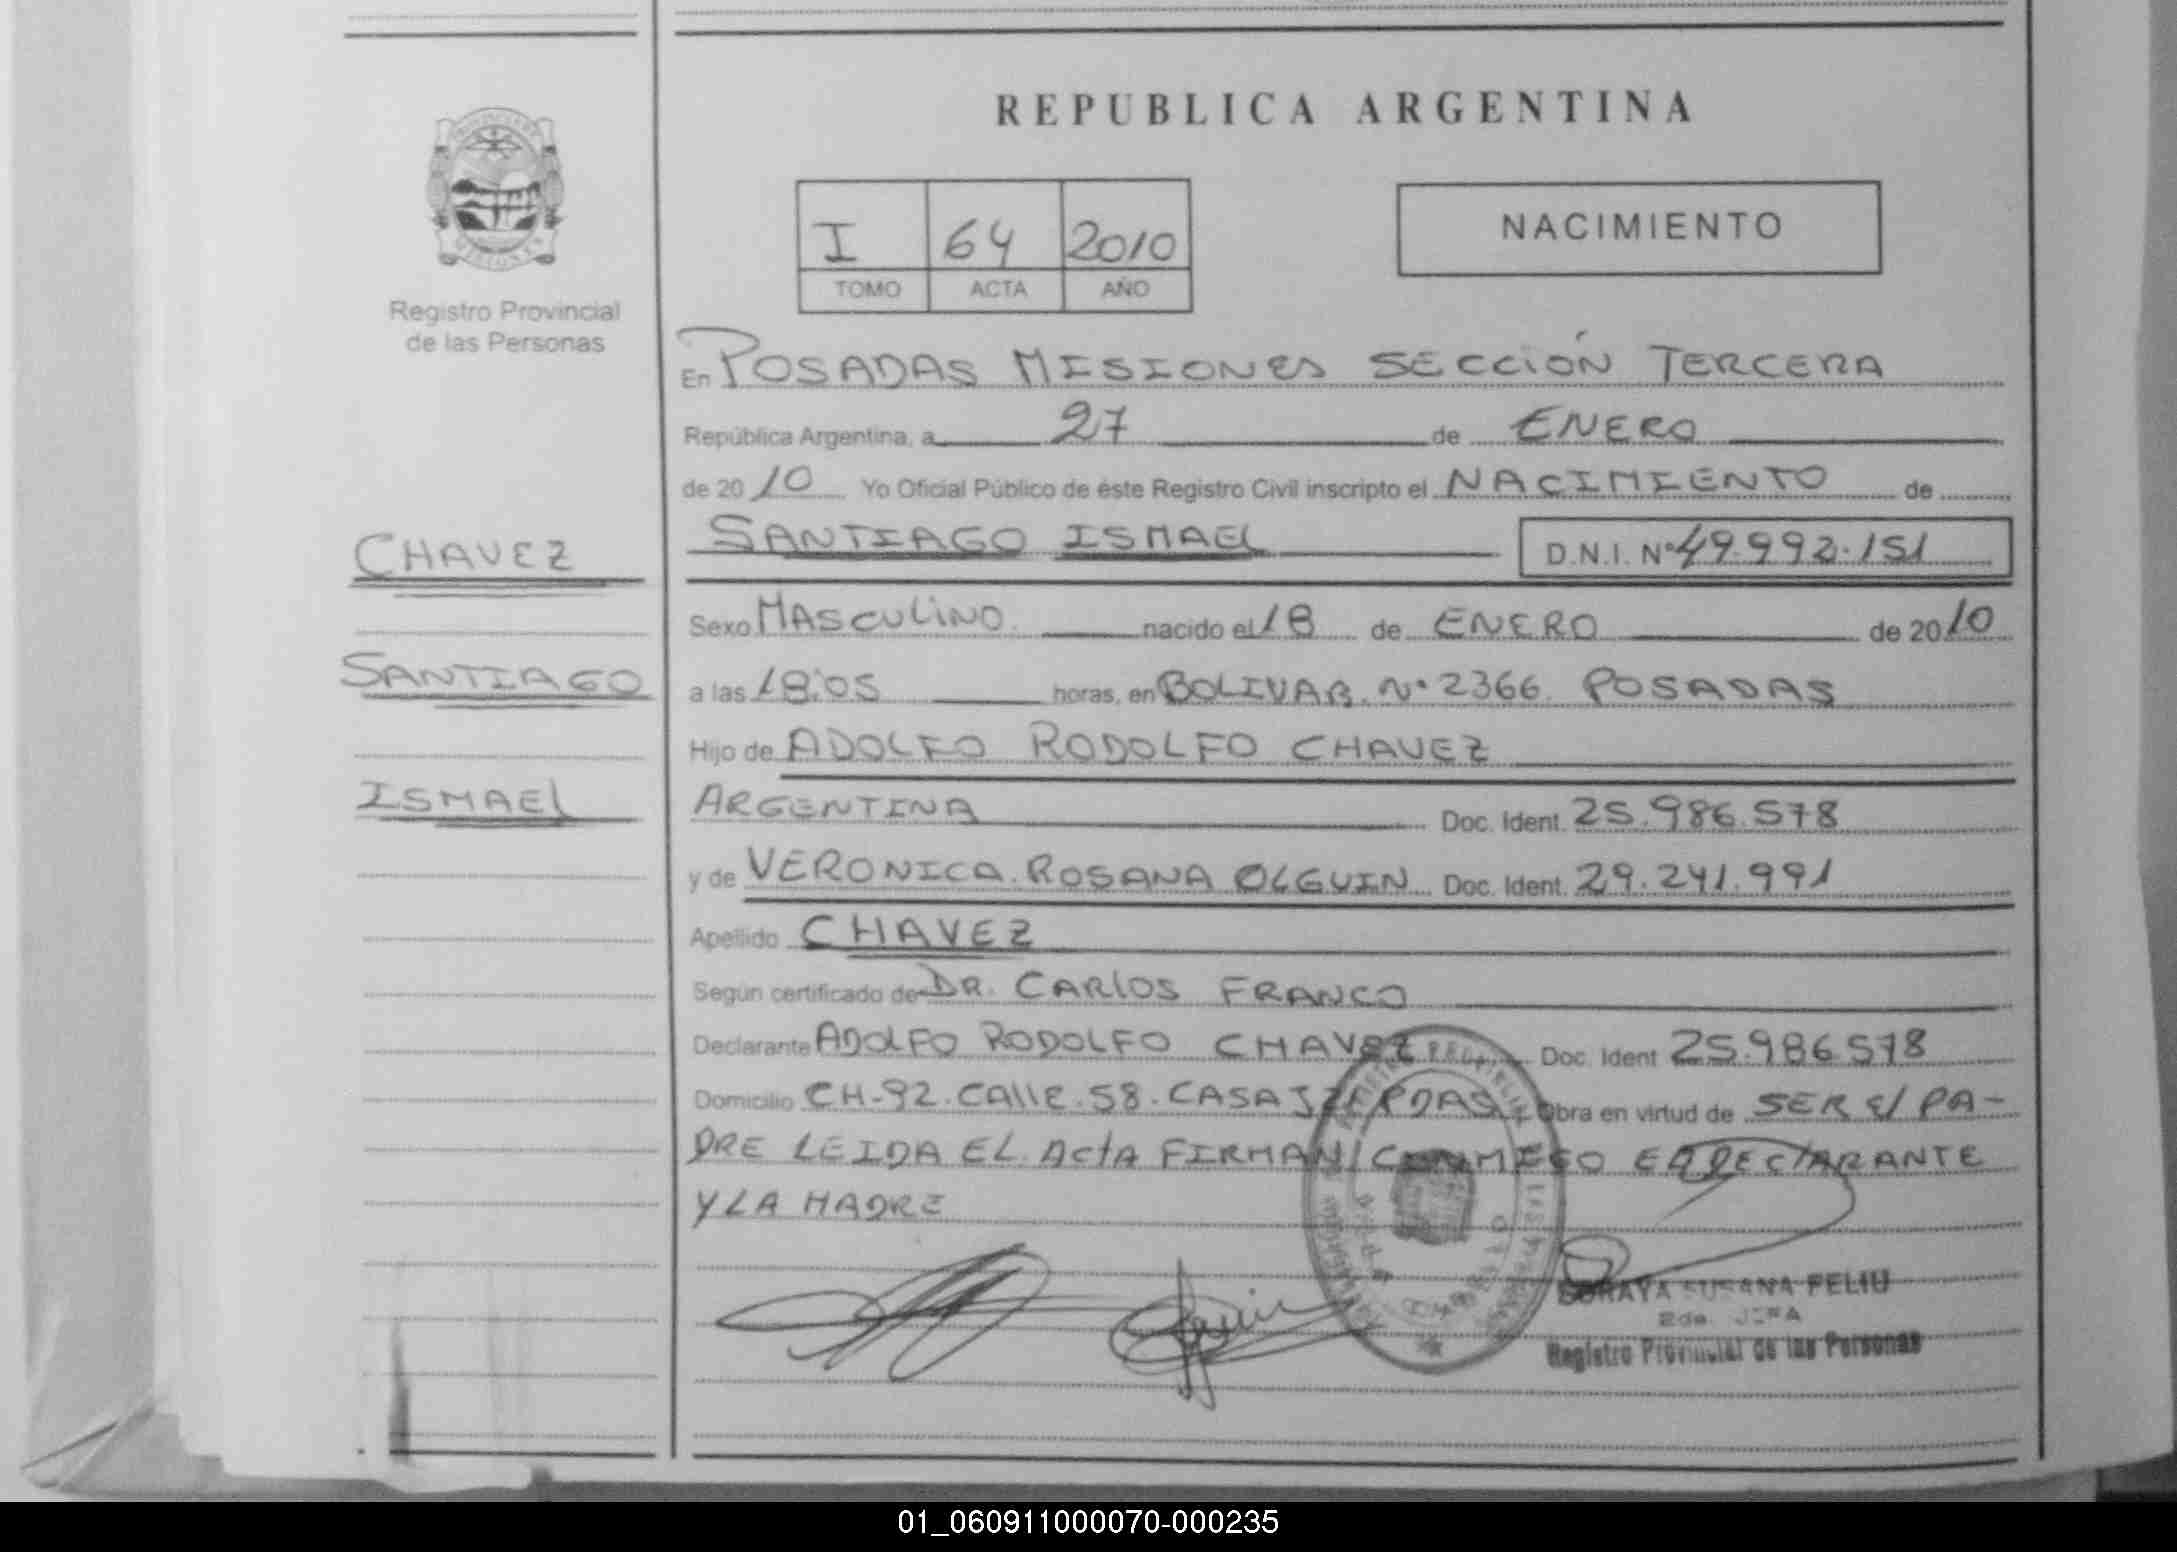 REPUBLICA ARGENTINA
I 64 2010
TOMO ACTA AÑO
NACIMIENTO
Registro Provincial
de las Personas
CHAVEZ
SANTIAGO
ISMAEL
En POSADAS MISIONES SECCIÓN TERCERA
República Argentina, a 27 de ENERO
de 2010 Yo Oficial Público de éste Registro Civil inscripto el NACIMIENTO de
SANTIAGO ISMAEL D.N.I. Nº 49.992.151
Sexo MASCULINO nacido el 18 de ENERO de 2010
a las 18:05 horas, en BOLIVAR. Nº 2366. POSADAS
Hijo de ADOLFO RODOLFO CHAVEZ
ARGENTINA Doc. Ident. 25.986.578
y de VERONICA ROSANA OLGUIN Doc. Ident. 29.241.991
Apellido CHAVEZ
Según certificado de DR. CARLOS FRANCO
Declarante ADOLFO RODOLFO CHAVEZ Doc. Ident 25.986.578
Domicilio CH-92. CALLE. 58. CASA PDAS Obra en virtud de SER El PA-
DRE LEIDA EL ActA FIRMAN CONMIGO EL DEClARANTE
Y LA MADRE
SORAYA SUSANA FELIU
2da. JEFA
Registro Provincial de las Personas
01_060911000070-000235